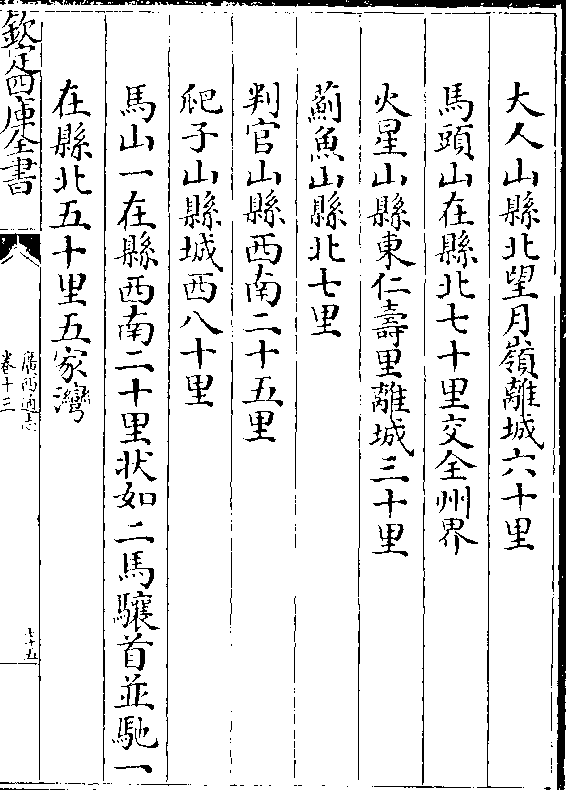 大人山縣北望月嶺離城六十里
馬頭山在縣北七十里交全州界
火星山縣東仁壽里離城三十里
薊魚山縣北七里
判官山縣西南二十五里
爬子山縣城西八十里
馬山一在縣西南二十里狀如二馬驤首並馳一
在縣北五十里五家灣
欽定四庫全書
廣西通志
卷十三
七十五